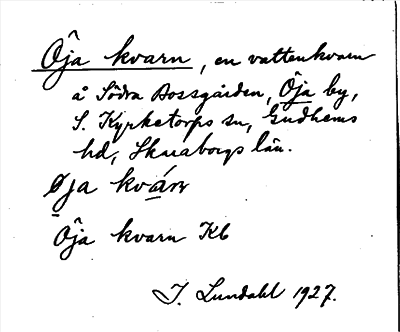 Öja kvarn, en vattenkvarn
å Södra Bossgården, Öja by,
S. Kyrketorps sn, Gudhems
hd, Skaraborgs län.
Øja kvárn
Öja kvarn Kb
I. Lundahl 1927.